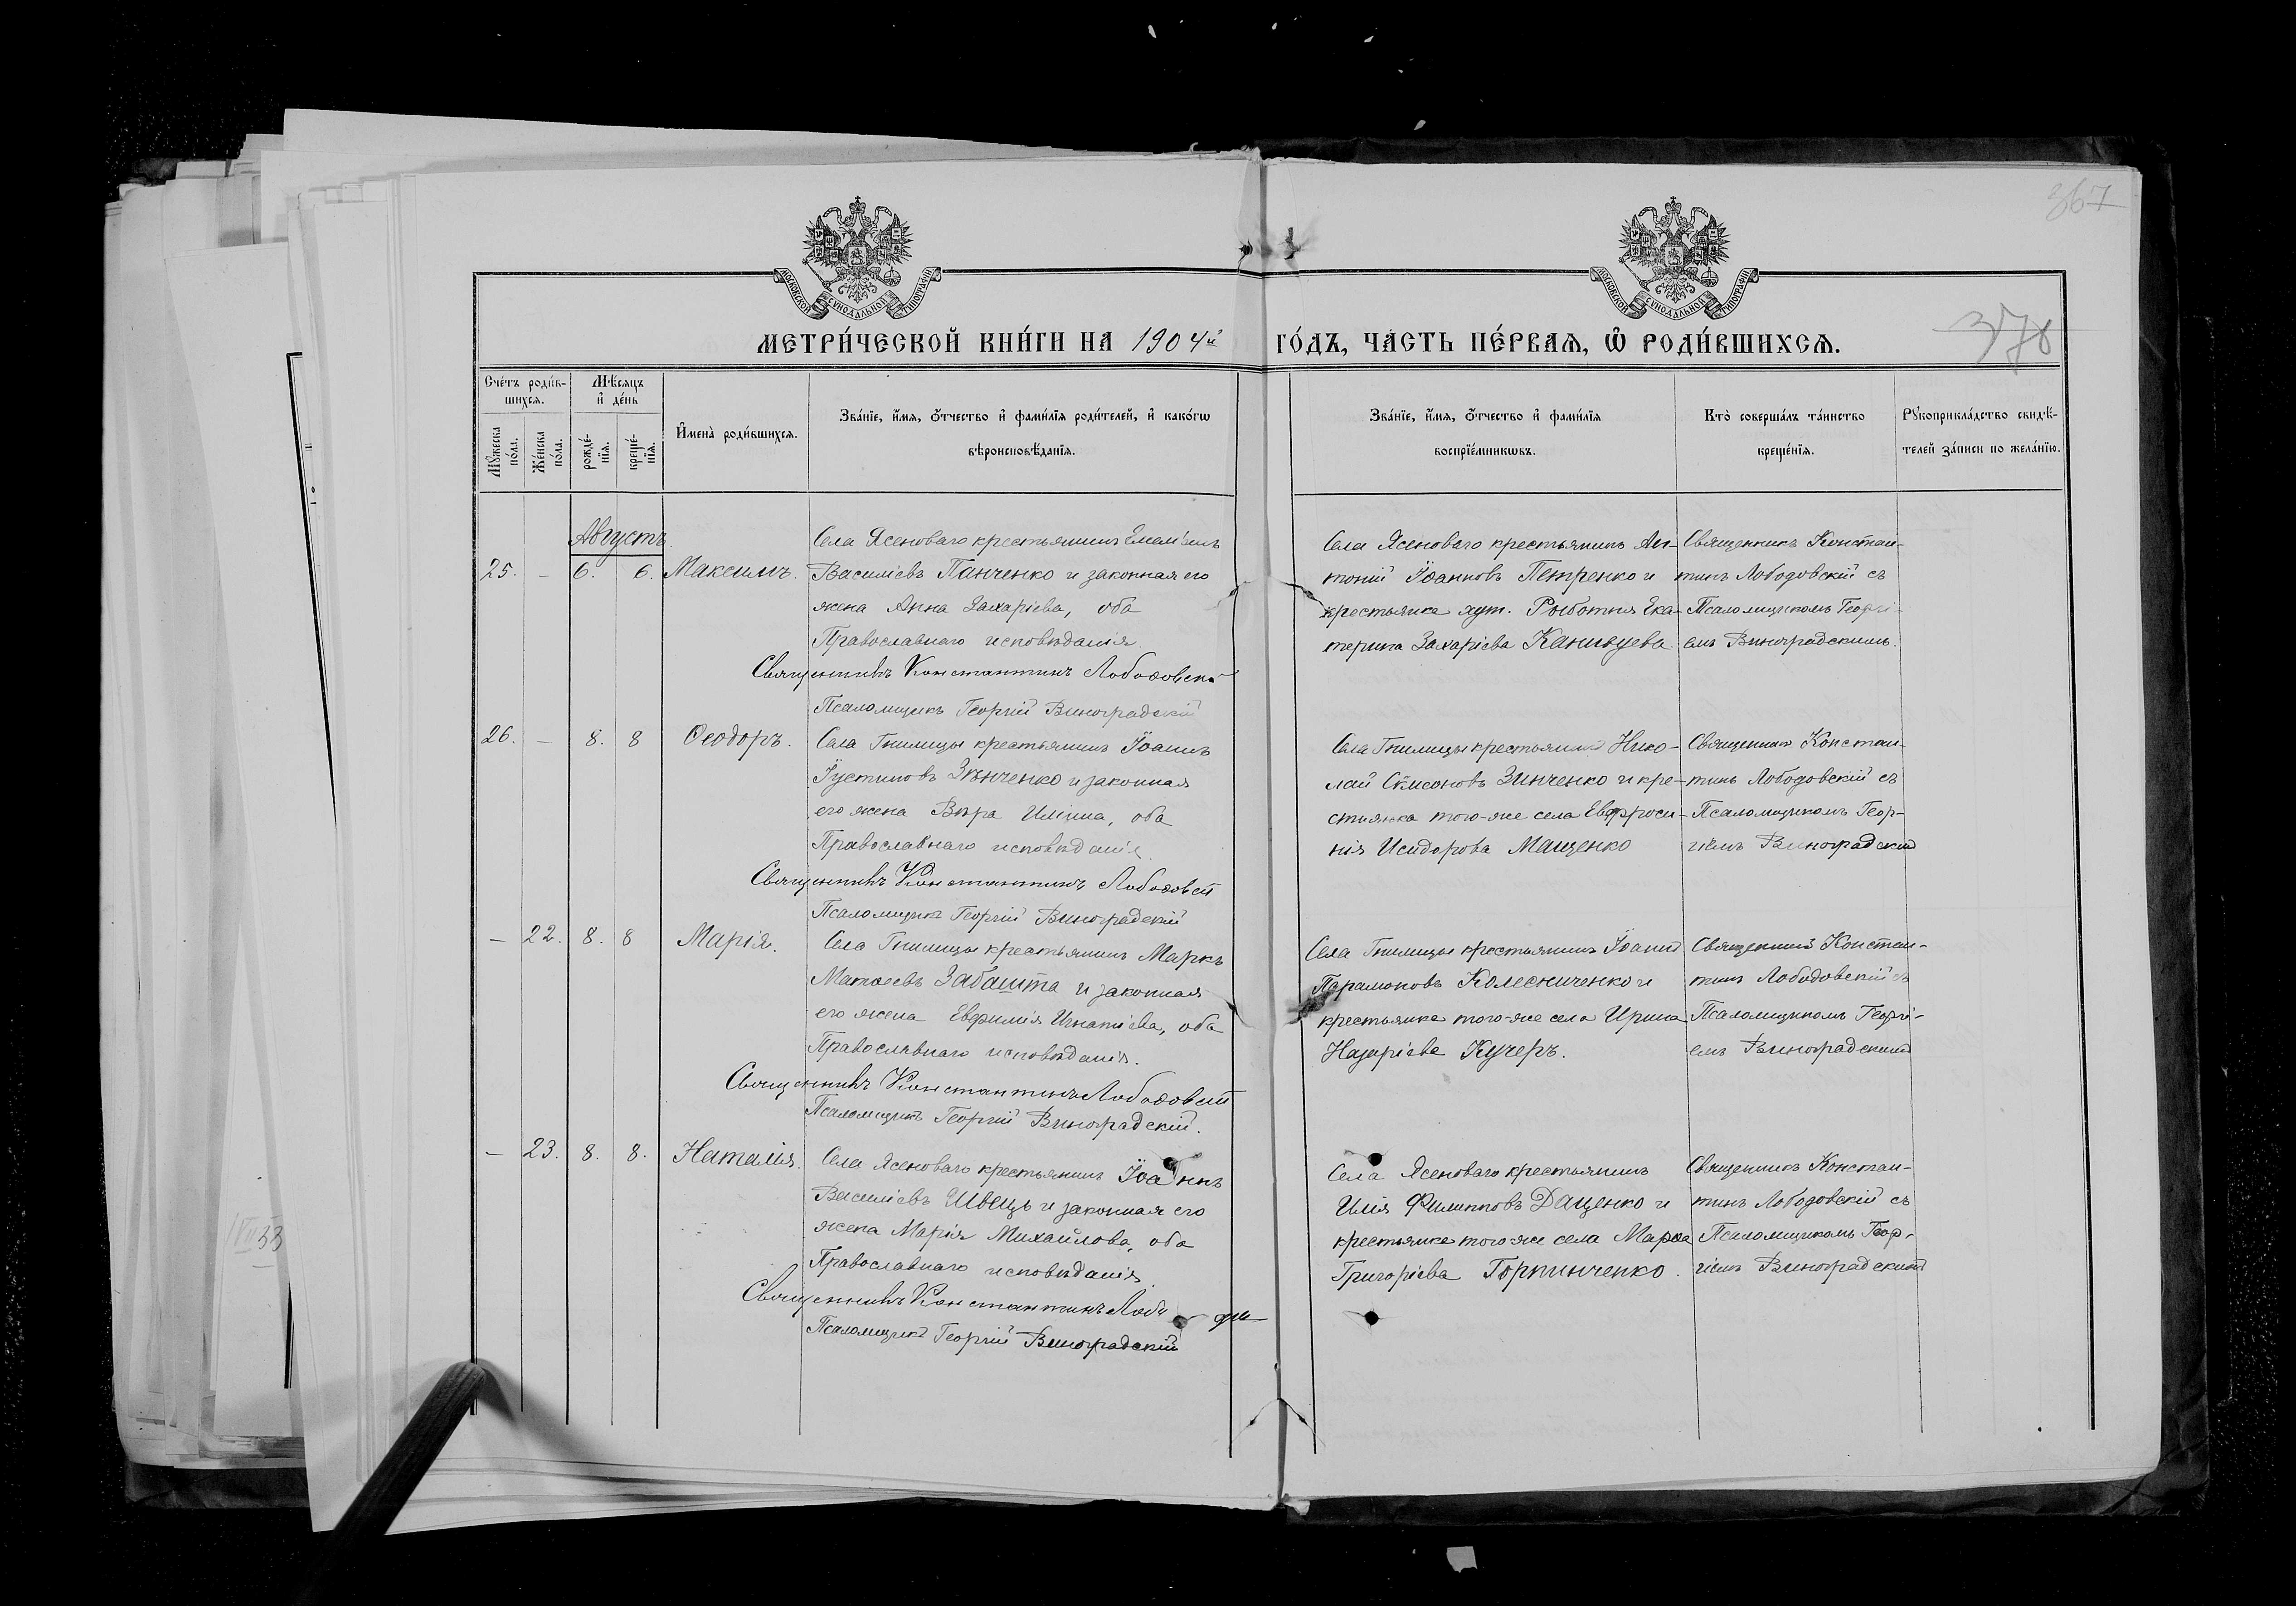 367
МОСКОВСКОЙ СѴНОДАЛЬНОЙ ТИПОГРАФІИ
МОСКОВСКОЙ СѴНОДАЛЬНОЙ ТИПОГРАФІИ
МЕТРИ́ЧЕСКОЙ КНИ́ГИ НА 1904й ГО́ДЪ, ЧА́СТЬ ПЕ́РВАѦ, Ѡ҆ РОДИ́ВШИХСѦ.
Сче́тъ роди́в-
шихсѧ.
Мѣ́сѧцъ
и҆ де́нь
Мꙋ́жеска
по́ла.
Же́нска
по́ла.
рожде́-
нїѧ.
креще́-
нїѧ.
И҆мена̀ роди́вшихсѧ.
Зва́нїе, и҆́мѧ, ѻ҆́тчество и҆ фами́лїѧ роди́телей, и҆ како́гѡ
вѣроисповѣ́данїѧ.
Зва́нїе, и҆́мѧ, ѻ҆́тчество и҆ фами́лїѧ
воспрїе́мникѡвъ.
Кто̀ соверша́лъ та́инство
креще́нїѧ.
Рꙋкоприкла́дство свидѣ́-
телей за́писи по жела́нїю.
Августъ
25. – 6. 6. Максимъ.
Села Ясеноваго крестьянинъ
Василіевъ Панченко и законная его
жена Анна Захаріева, оба
Православнаго исповѣданія.
Священникъ Константинъ
Псаломщикъ Георгій Виноградскій
Села Ясеноваго крестьянинъ Ан-
тоній Іоанновъ Петренко и
крестьянка хут. Ека-
терина Захаріева Канивцева
Священникъ Констан-
тинъ Лободовскій съ
Псаломщикомъ Георгі-
емъ Виноградскимъ.
26. – 8. 8 Ѳеодоръ.
Села Гнилицы крестьянинъ Іоаннъ
Іустиновъ Зѣнченко и законная
его жена Вѣра Иліина, оба
Православнаго исповѣданія.
Священникъ Константинъ Лободовскій
Псаломщикъ Георгій Виноградскій
Села Гнилицы крестьянинъ Нико-
лай Симеоновъ Зинченко и кре-
стьянка того-же села Евфроси-
нія Исидорова Мащенко
Священникъ Констан-
тинъ Лободовскій съ
Псаломщикомъ Геор-
гіемъ Виноградскимъ
– 22. 8. 8 Марія.
Села Гнилицы крестьянинъ Маркъ
Матѳеевъ Забашта и законная
его жена Евфимія Игнатіева, оба
Православнаго исповѣданія.
Священникъ Константинъ Лободовскій
Псаломщикъ Георгій Виноградскій.
Села Гнилицы крестьянинъ Іоаннъ
Парамоновъ Колесниченко и
крестьянка того-же села Ирина
Назаріева Кучеръ.
Священникъ Констан-
тинъ Лободовскій съ
Псаломщикомъ Георгі-
емъ Виноградскимъ
– 23. 8. 8. Наталія.
Села Ясеноваго крестьянинъ Іоаннъ
Василіевъ Швецъ и законная его
жена Марія Михайлова, оба
Православнаго исповѣданія.
Священникъ Константинъ
Псаломщикъ Георгій Виноградскій
Села Ясеноваго крестьянинъ
Илія Филипповъ Даценко и
крестьянка того-же села Марѳа
Григоріева Горпинченко.
Священникъ Констан-
тинъ Лободовскій съ
Псаломщикомъ Геор-
гіемъ Виноградскимъ